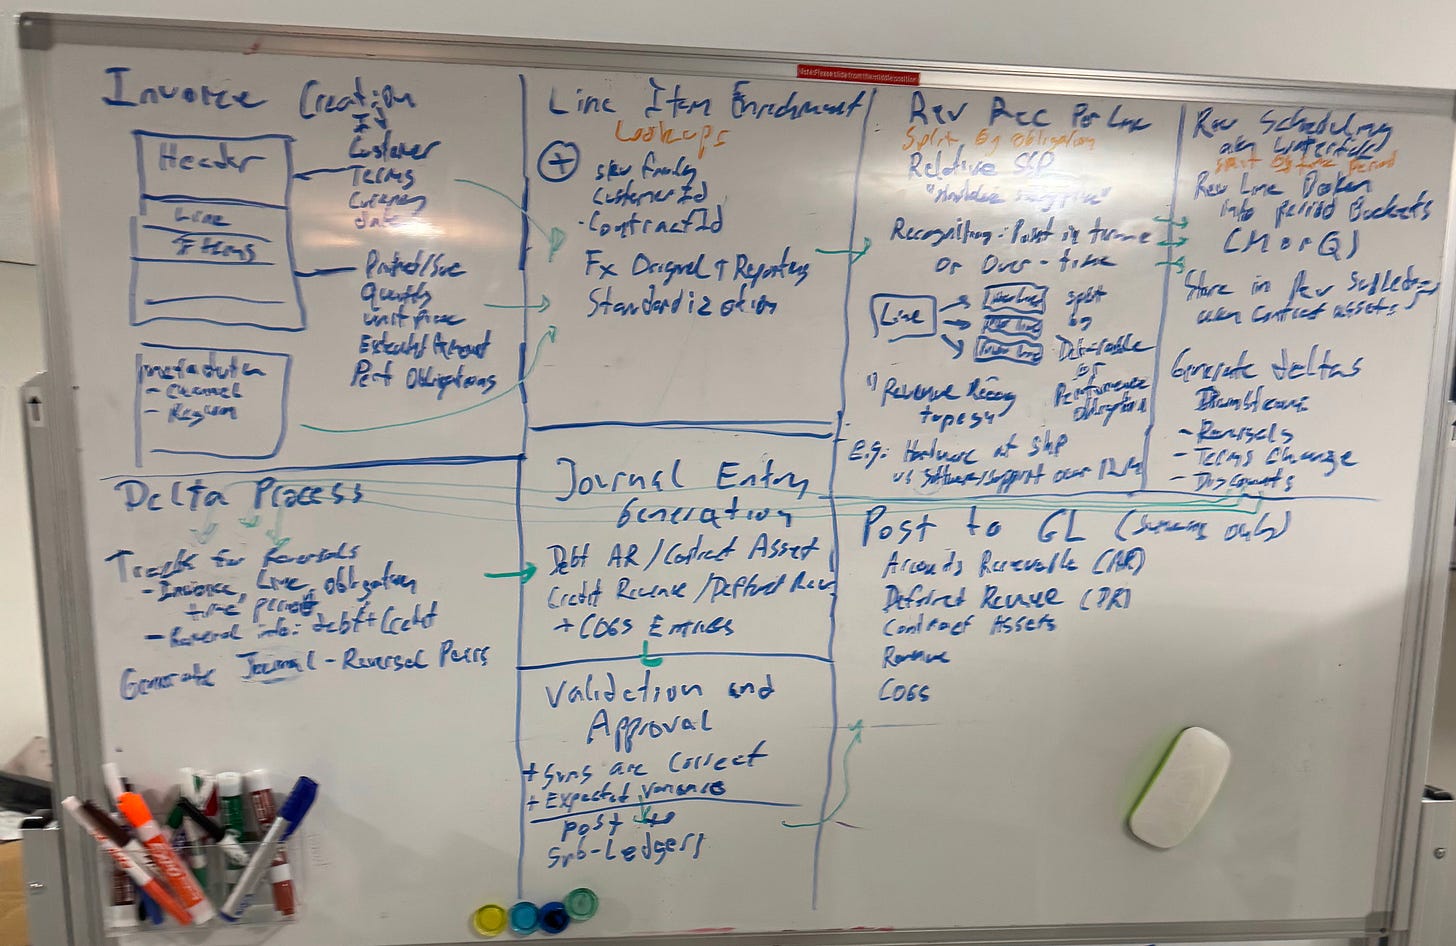 Note:Please slide from the middle position
Invoice Creation
Header
Line
Items
ID
Customer
Terms
Currency
date
Product/Svc
Quantity
unit price
Extended Amount
Perf Obligations
metadata
- Channel
- Region
Line Item Enrichment
Lookups
+
sku family
CustomerId
- ContractId
Fx Original + Reporting
Standardization
Rev Rec Per Line
Split By Obligation
Relative SSP
Recognition: Point in time
or Over-time
Line
split
by
Deliverable
or
Performance
obligation
Revenue Recog
types
E.g: Hardware at Ship
vs Software/support over 12M
Rev Scheduling
aka Waterfall
split by time period
Rev Line Broken
into period Buckets
(M or Q)
Store in Rev Subledger
aka Contract assets
Generate deltas
Downstream
- Reversals
- Terms Change
- Discounts
Delta Process
Tracks for Reversals
- Invoice, Line, obligation
time period
- Reversal info: debt + Credit
Generate Journal - Reversal Pairs
Journal Entry
Generation
Debt AR / Contract Asset
Credit Revenue / Deffered Rev
+ COGS Entries
Validation and
Approval
+ Sums are Correct
+ Expected variance
Post to
Sub-Ledgers
Post to GL (summary only)
Accounts Receivable (AR)
Deferred Revenue (DR)
Contract Assets
Revenue
COGS